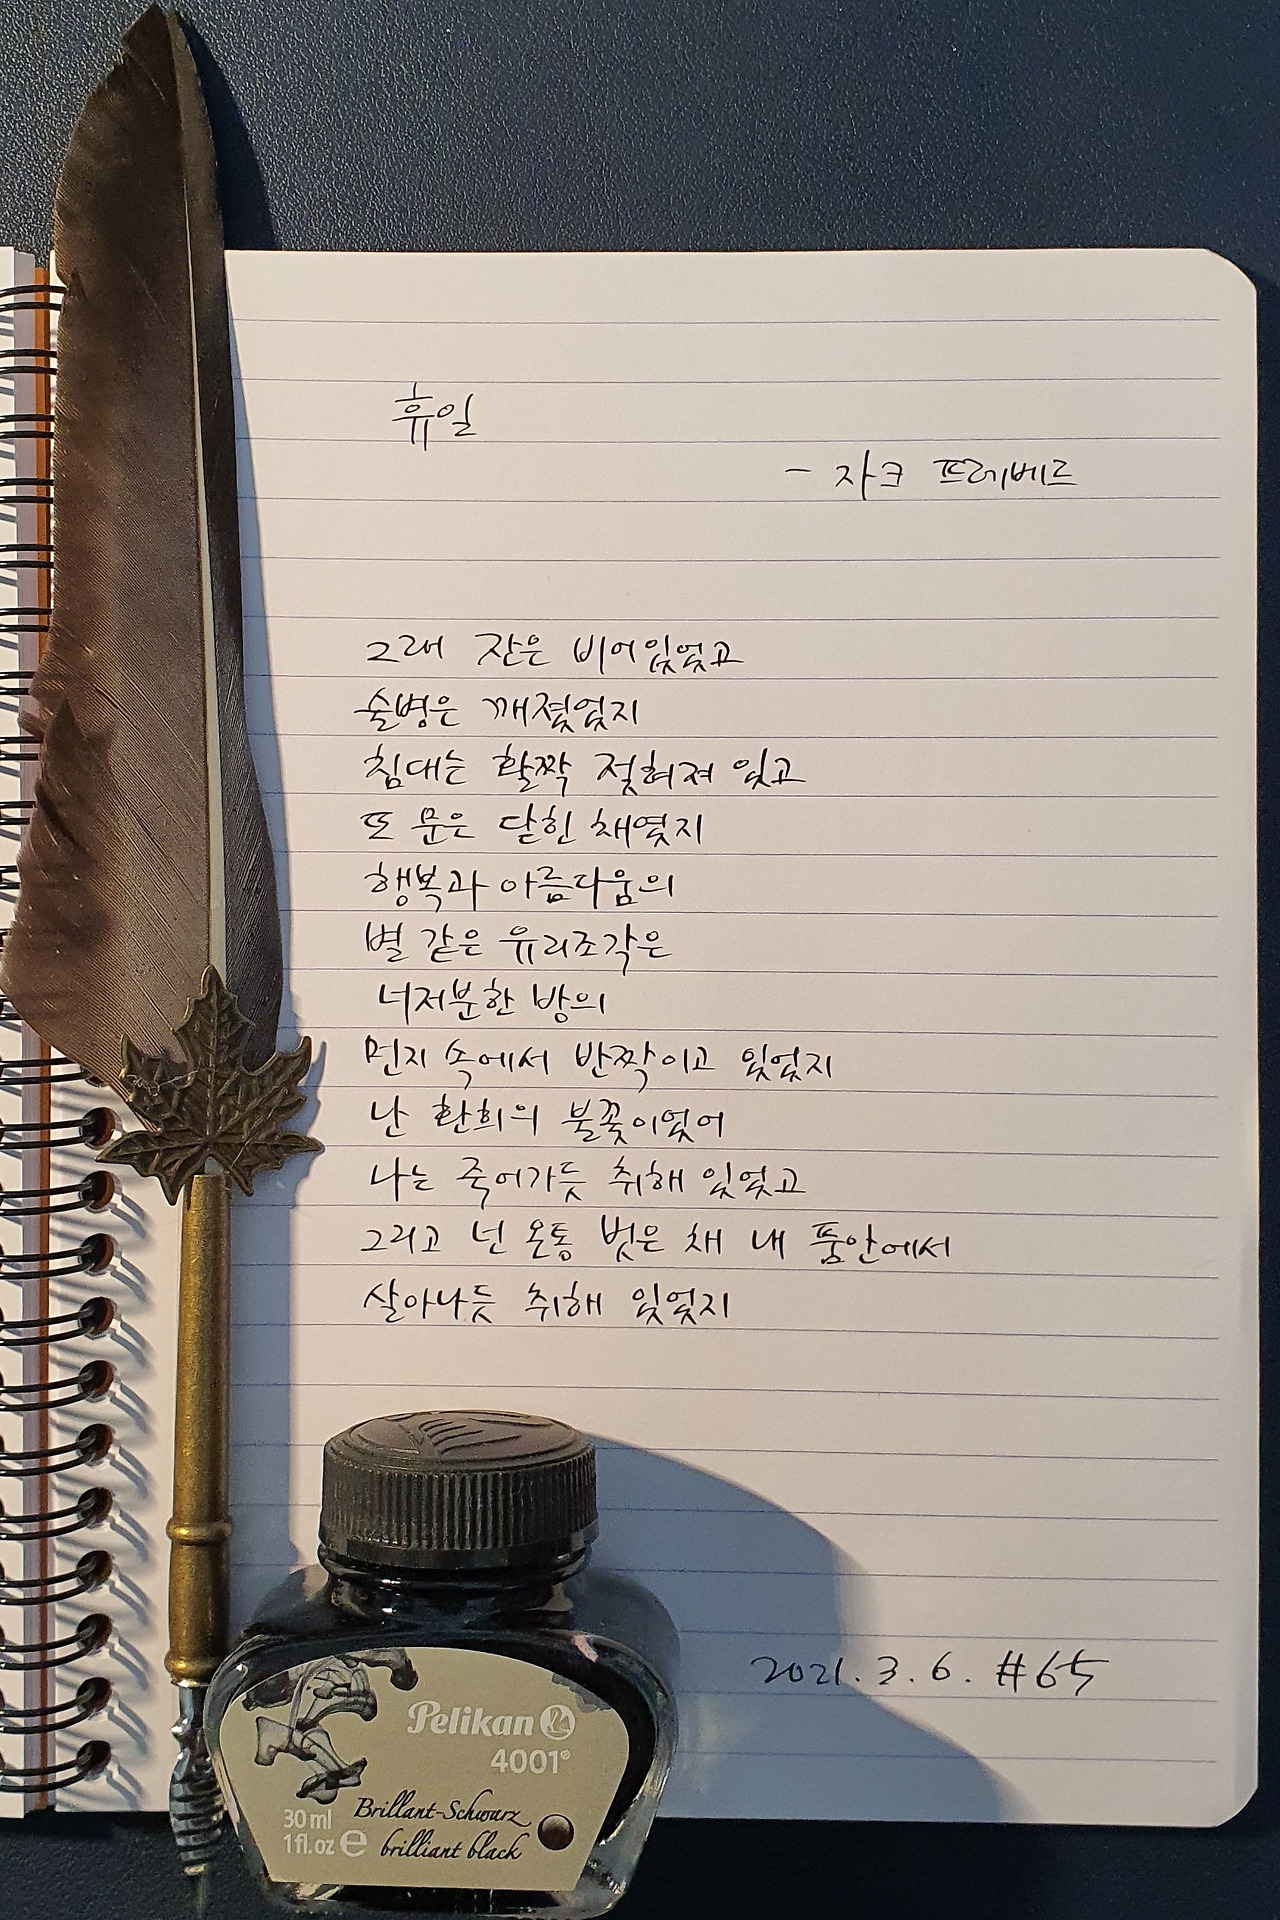 휴일
- 자크 프레베르
그래 잔은 비어있었고
술병은 깨졌었지
침대는 활짝 젖혀져 있고
또 문은 닫힌 채였지
행복과 아름다움의
별 같은 유리조각은
너저분한 방의
먼지 속에서 반짝이고 있었지
난 환희의 불꽃이었어
나는 죽어가듯 취해 있었고
그리고 넌 온통 벗은 채 내 품안에서
살아나듯 취해 있었지
2021. 3. 6. #65
Pelikan
4001®
30 ml Brillant-Schwarz
1 fl.oz e brilliant black